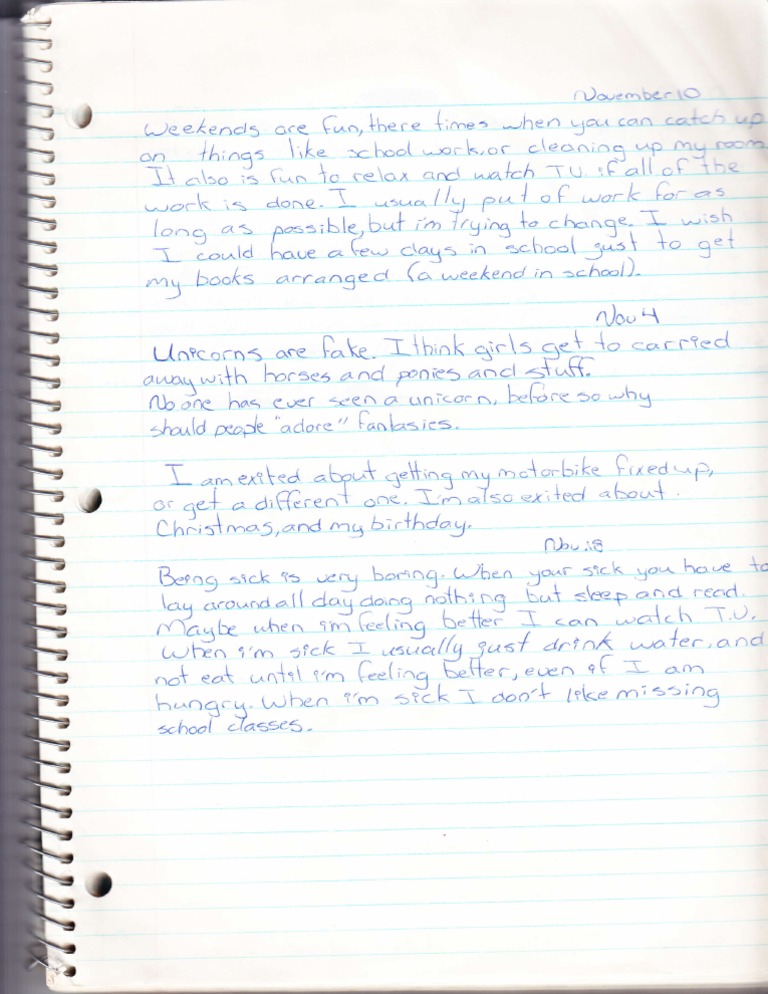 November 10
Weekends are fun, there times when you can catch up
on things like school work, or cleaning up my room.
It also is fun to relax and watch T.V. if all of the
work is done. I usually put of work for as
long as possible, but i'm trying to change. I wish
I could have a few days in school just to get
my books arranged (a weekend in school).
Nov 4
Unicorns are fake. I think girls get to carried
away with horses and ponies and stuff.
No one has ever seen a unicorn, before so why
should people "adore" fantasies.
I am exited about getting my motorbike fixed up,
or get a different one. I'm also exited about
Christmas, and my birthday.
Nov. 18
Being sick is very boring. When your sick you have to
lay around all day doing nothing but sleep and read.
Maybe when i'm feeling better I can watch T.V.
When i'm sick I usually just drink water, and
not eat until i'm feeling better, even if I am
hungry. When i'm sick I don't like missing
school classes.